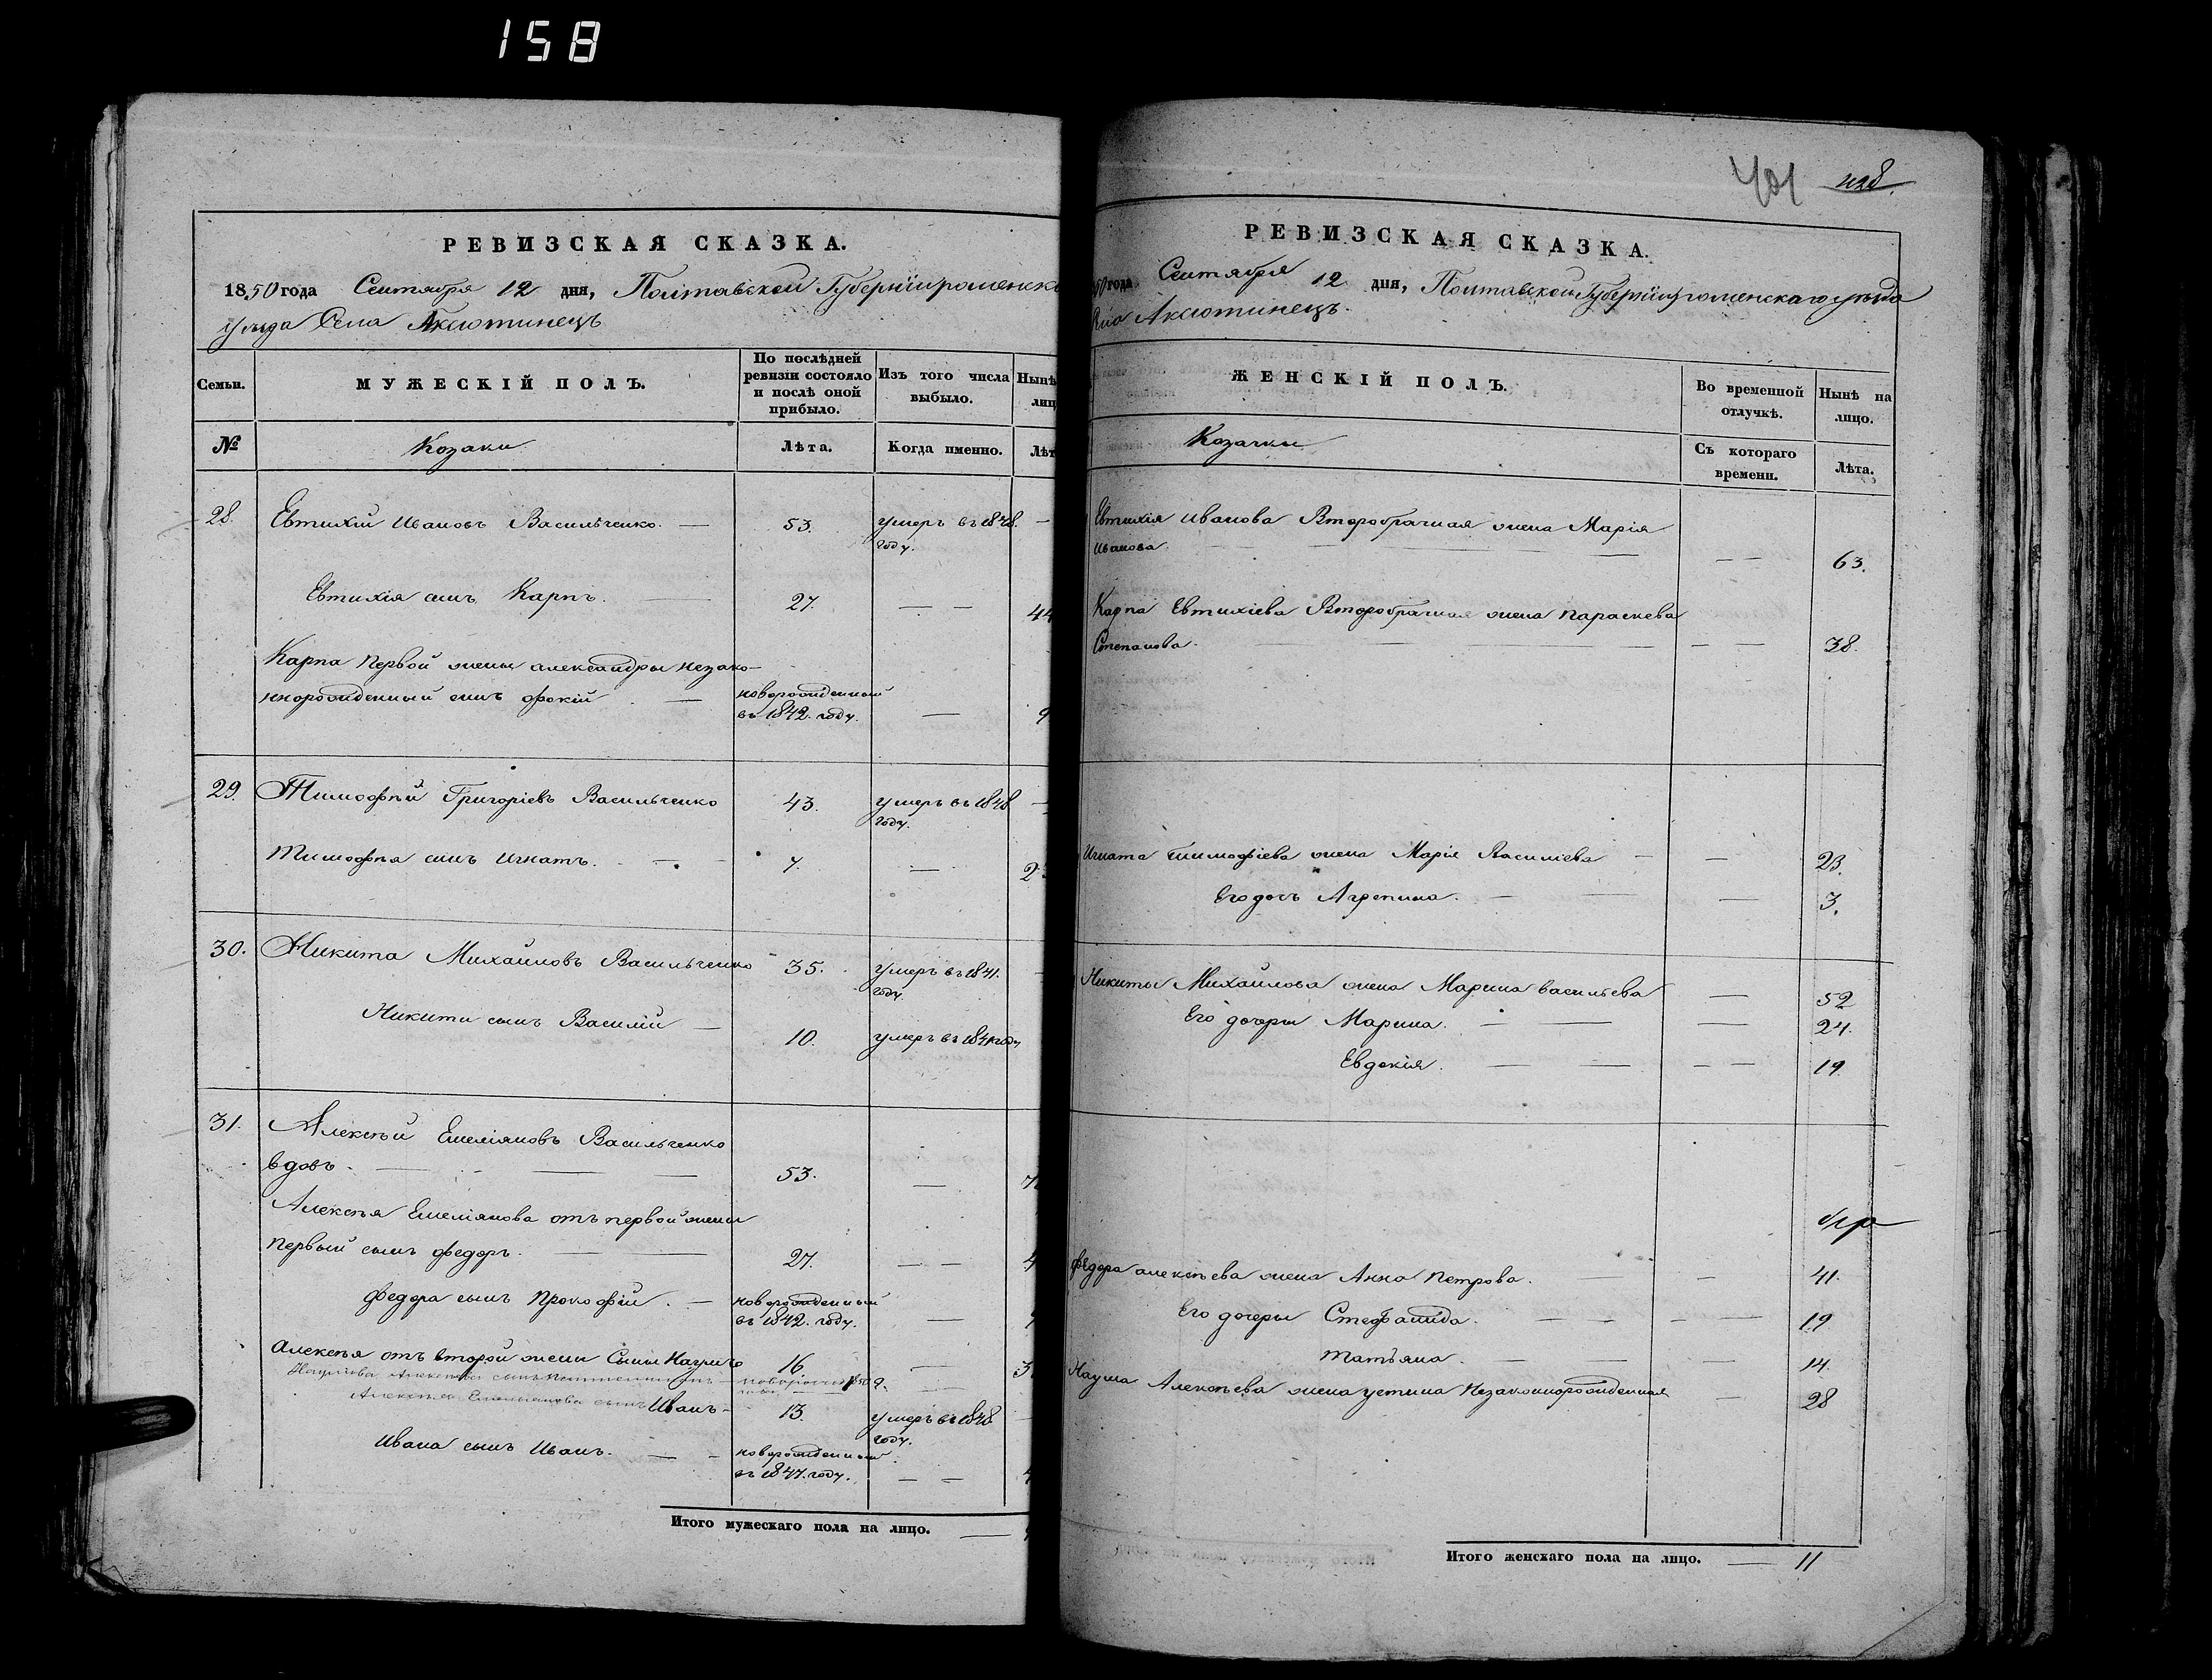 158
РЕВИЗСКАЯ СКАЗКА.
1850 года Сентября 12 дня, Полтавской Губерніи роменско
уезда Села Аксютинецъ
Семьи. МУЖЕСКІЙ ПОЛЪ. По послѣдней ревизіи состояло и послѣ оной прибыло. Изъ того числа выбыло. Нынѣ лиц
№ Козаки Лѣта. Когда именно. Лѣт
28. Евтихій Ивановъ Васильченко. — 53. умеръ въ 1848. —
году.
Евтихія сынъ Карпъ. — 27. — — 44
Карпа первой жены александры незако-
ннорожденный сынъ фокій — новорожденный
въ 1842. году. — 9
29. Тимофѣй Григоріевъ Васильченко 43. умеръ въ 1848 —
году.
Тимофѣя сынъ Игнатъ. — 7. — 2
30. Никита Михайловъ Васильченко 35. умеръ въ 1841.
году.
Никиты сынъ Василій — 10. умеръ въ 1841 году
31. Алексѣй Емеліяновъ Васильченко
вдовъ. — 53. —
Алексѣя Емеліянова отъ первой жены
первый сынъ федоръ. — 27. — —
федора сынъ Прокофій. — новорожденный
въ 1842. году. —
Алексѣя отъ второй жены Сыны Наумъ 16 — 3
Алексѣева сынъ
Алексѣя Емельянова сынъ Иванъ — 13. умеръ въ 1848
году.
Ивана сынъ Иванъ. — — новорожденный
въ 1847. году. — —
Итого мужескаго пола на лицо. —
401 428.
РЕВИЗСКАЯ СКАЗКА.
50 года Сентября 12 дня, Полтавской Губерніи роменскаго уезда
Аксютинецъ.
ЖЕНСКІЙ ПОЛЪ. Во временной отлучкѣ. Нынѣ на лицо.
Козачки Съ котораго времени. Лѣта.
Евтихія иванова Второбрачная жена Марія
Иванова. — — — 63.
Карпа Евтихіева Второбрачная жена параскева
Степанова. — — — 38.
Игната тимофіева жена Марія Василіева — — 23.
Его дочь Агрепина. — — 3.
Никиты Михайлова жена Марина васильева — 52
Его дочери Марина. — — — 24.
Евдокія. — — — — 19
федора алексѣева жена Анна Петрова. — — 41.
Его дочери Стефанида. — — — — 19
Татьяна. — — — 14.
Наума Алексѣева жена устина Незаконнорожденная — 28
Итого женскаго пола на лицо. — 11